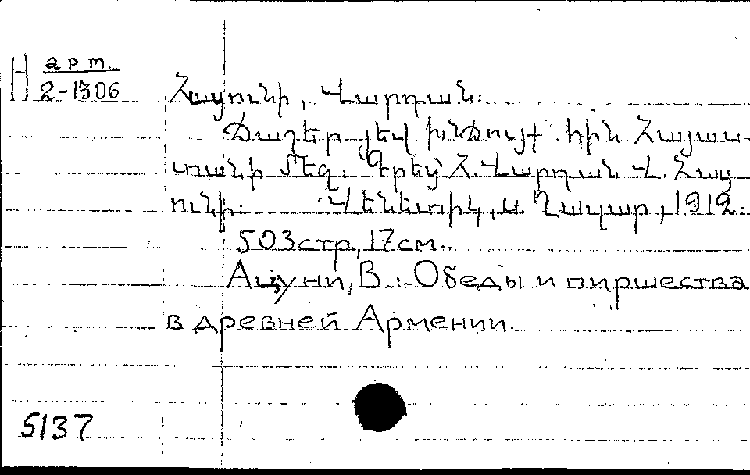 Н арт.
2-1306
Հացունի, Վարդան.
Ճաշեր յեվ խնճույք հին Հայաս-
տանի մեջ. Գրեց Հ. Վարդան Վ. Հաց-
ունի. Վենետիկ, ս. Ղազար, 1912.
503стр, 17см.
Ацуни, В. Обеды и пиршества
в древней Армении.
5137